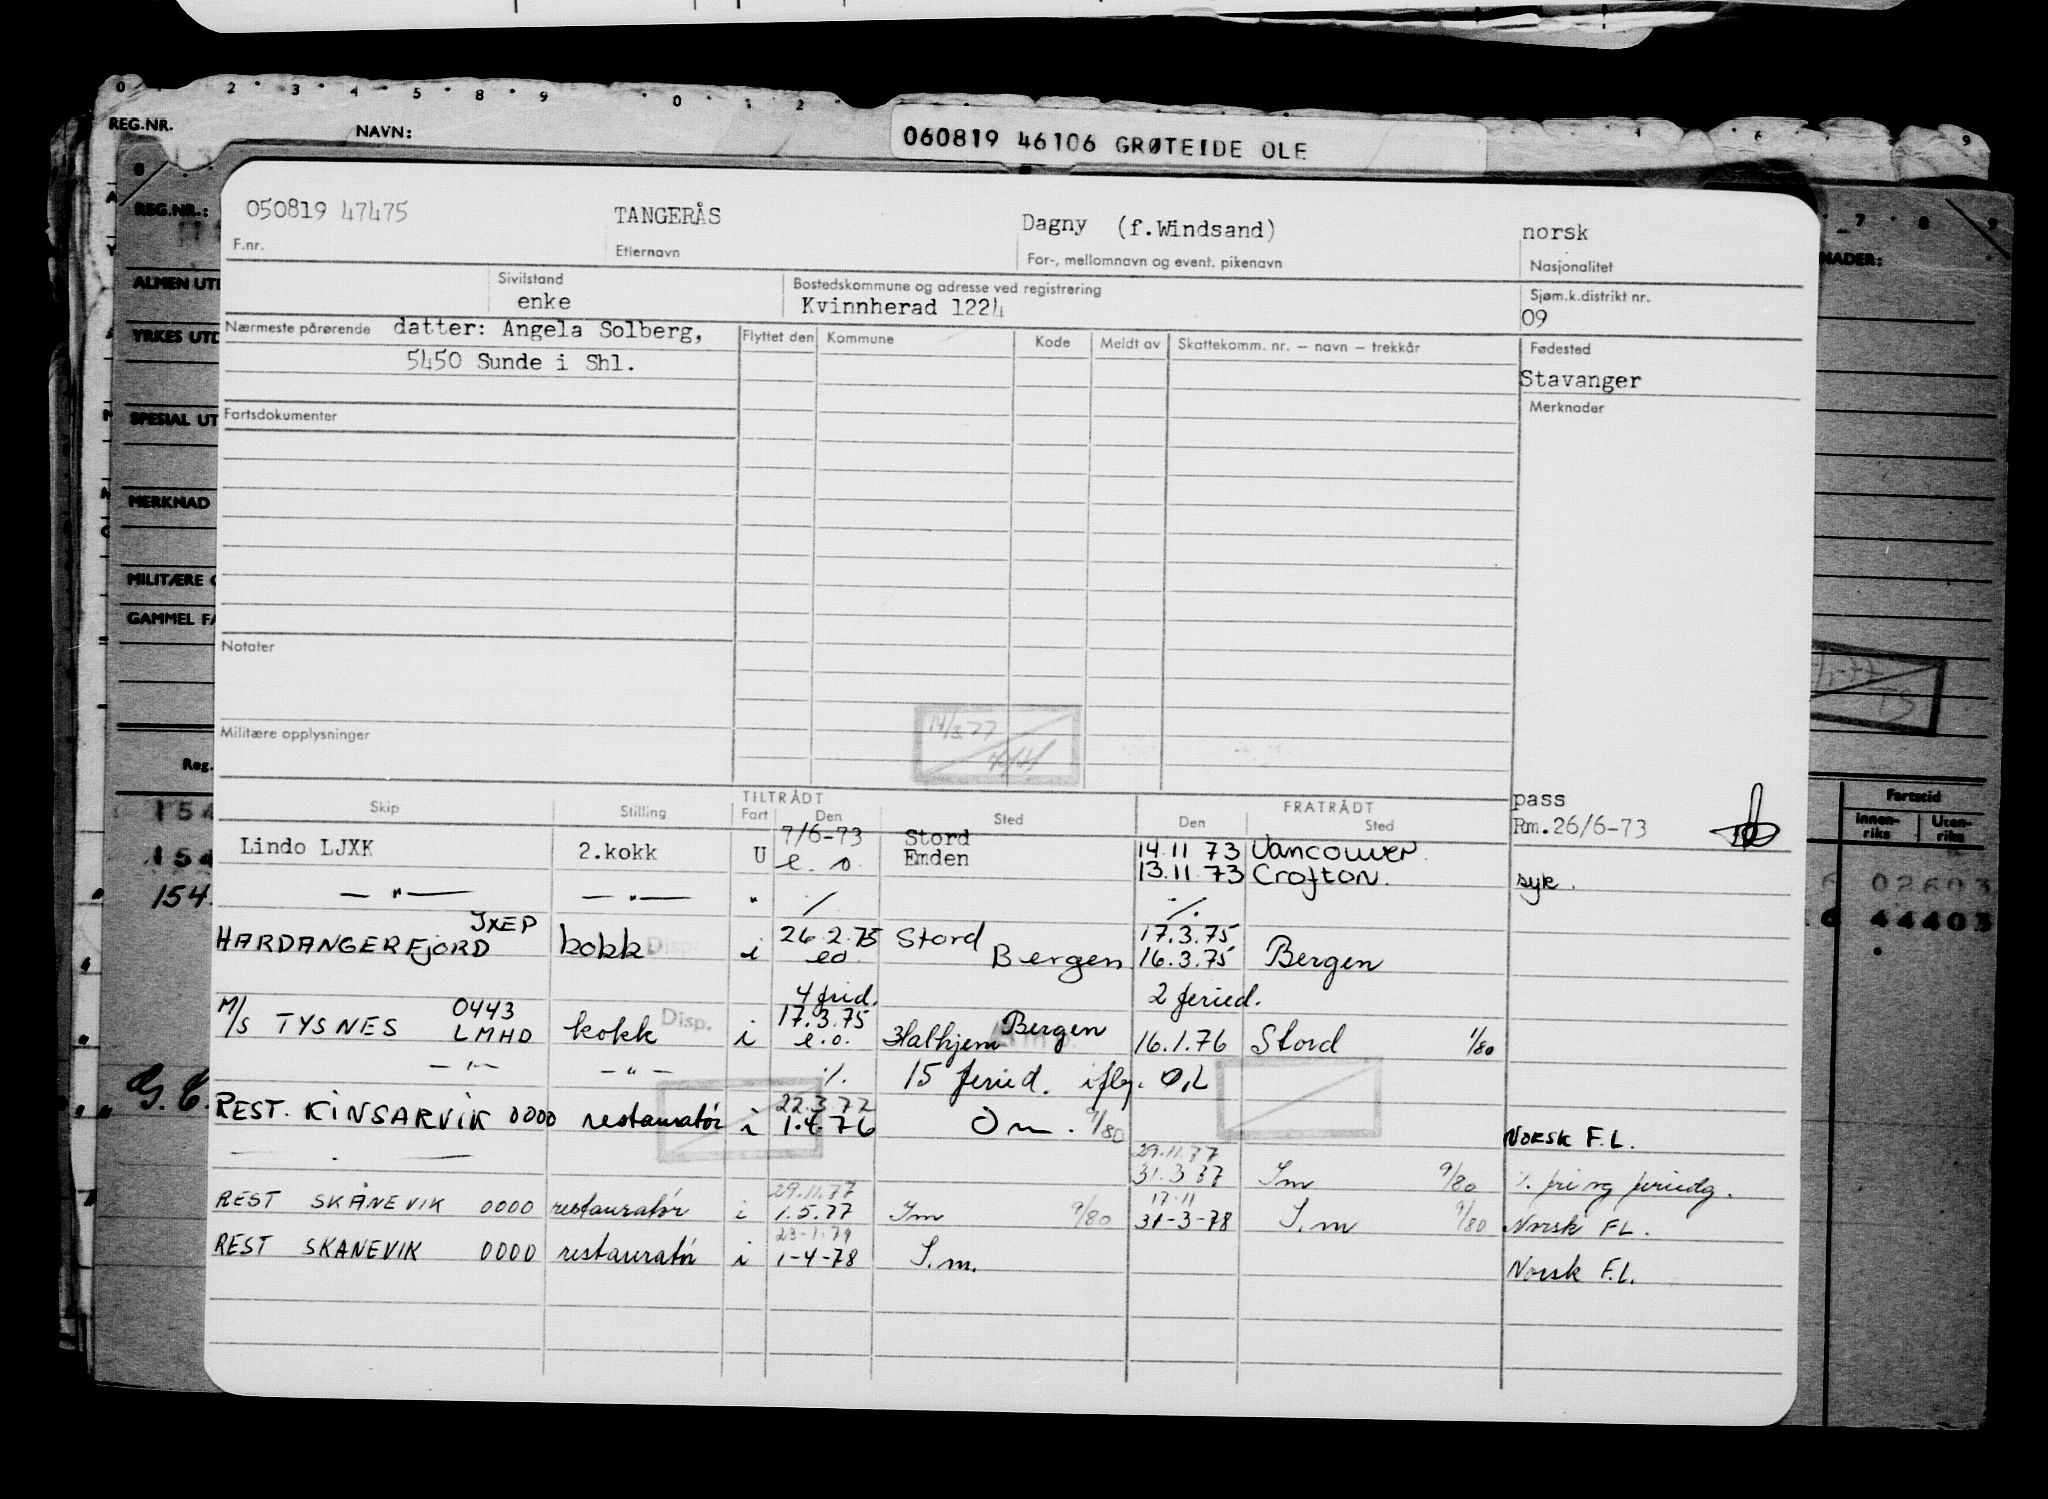 REG.NR. NAVN:
060819 46106 GRØTEIDE OLE
050819 47475 TANGERÅS Dagny (f.Windsand) norsk
F.nr. Etternavn For-, mellomnavn og event. pikenavn Nasjonalitet
Sivilstand Bostedskommune og adresse ved registrering Sjøm.k.distrikt nr.
enke Kvinnherad 1224 09
Nærmeste pårørende datter: Angela Solberg, Flyttet den Kommune Kode Meldt av Skattekomm. nr. – navn – trekkår Fødested
5450 Sunde i Shl. Stavanger
Fartsdokumenter Merknader
REG.NR.:
ALMEN UT
YRKES UTD
SPESIAL UT
MERKNAD
MILITÆRE
GAMMEL FA
NADER:
Notater
14/3.77
Militære opplysninger
Reg.
TILTRÅDT FRATRÅDT pass
Skip Stilling Fart Den Sted Den Sted Rm.26/6-73
Fartstid
Innen-riks Uten-riks
Lindo LJXK 2.kokk U 7/6-73 Stord 14.11 73 Vancouver.
e.o. Emden 13.11 73 Crofton. syk.
— " — — " — " ./. ./.
02603
154
44403
JXEP
HARDANGERFJORD kokk Disp. i 26.2.75 Stord 17.3.75
eo. Bergen 16.3.75 Bergen
4 frid. 2 feried.
M/S TYSNES 0443 kokk Disp. i 17.3.75 Bergen
LMHD e.o. Halhjem 16.1.76 Stord 1/80
— " — — " — ./. 15 feried. iflg. O,L
REST. KINSARVIK 0000 restauratør i 22.3.77
1.4.76 Om. 9/80 NORSK F.L.
29.11.77
31.3.77 Im 9/80 ./. fri og feriedg.
REST SKÅNEVIK 0000 restauratør i 29.11.77 17.11
1.5.77 Im 9/80 31-3-78 I.m 9/80 Norsk FL.
REST SKANEVIK 0000 restauratør i 23-1-79
1-4-78 I.m. Norsk F.L.